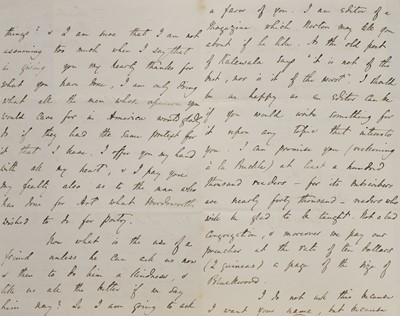 things? & I am sure that I am not
assuming too much when I say that
in giving you my hearty thanks for
what you have done, I am only doing
what all the men whose opinion you
would care for in America would gladly
do if they had the same pretext for
it that I have. I offer you my hand
with all my heart, & I pay you
my fealty also as to the man who
has done for Art what Wordsworth
wished to do for poetry.
Now what is the use of a
friend unless he can ask us now
& then to do him a kindness, &
like us all the better if we say
him nay? So I am going to ask
a favor of you. I am editor of a
Magazine which Norton may tell you
about if he like. As the old poet
of Kalewala says "it is not of the
best, nor is it of the worst." I should
be as happy as an Editor can be
if you would write something for
it upon any topic that interests
you. I can promise you (reckoning
à la Buckle) at least a hundred
thousand readers – for its subscribers
are nearly forty thousand – readers who
will be glad to be taught. Not a bad
congregation, & moreover we pay our
preacher at the rate of ten dollars
(2 guineas) a page of the size of
Blackwood.
I do not ask this because
I want your name, but because